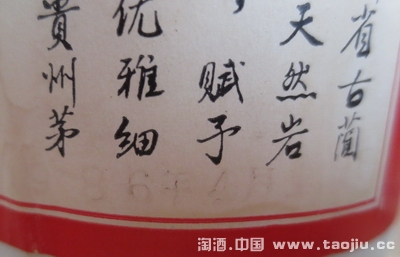 省古蔺
天然岩
，赋予
优雅细
貴州茅
淘酒.中国 www.taojiu.cc